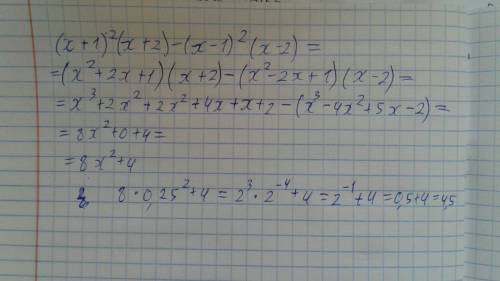 (x+1)²(x+2)-(x-1)²(x-2)=
=(x²+2x+1)(x+2)-(x²-2x+1)(x-2)=
=x³+2x²+2x²+4x+x+2-(x³-4x²+5x-2)=
=8x²+0+4=
=8x²+4
8·0,25²+4=2³·2⁻⁴+4=2⁻¹+4=0,5+4=4,5